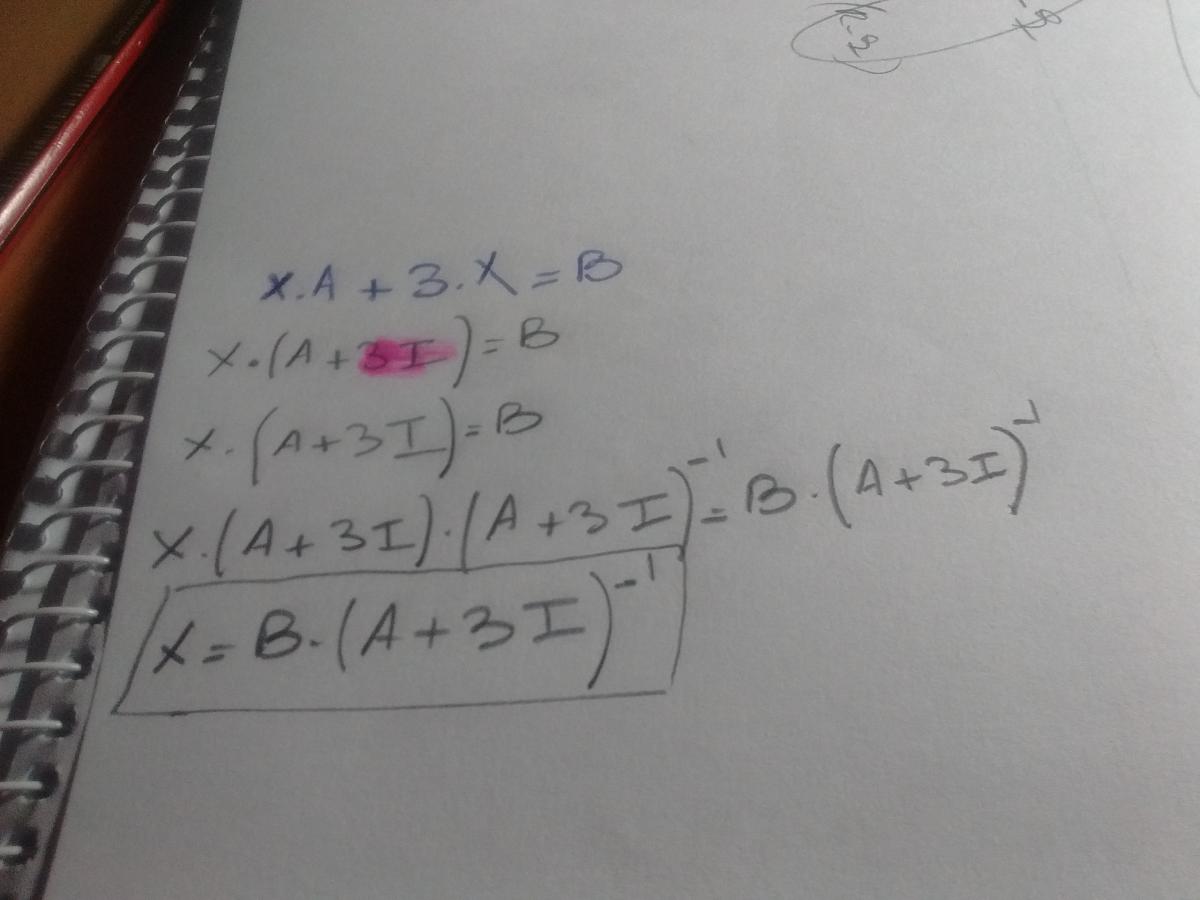 x.A + 3.X = B
X.(A + 3I) = B
X.(A+3I) = B
X.(A+3I).(A+3I)⁻¹ = B.(A+3I)⁻¹
X = B.(A+3I)⁻¹